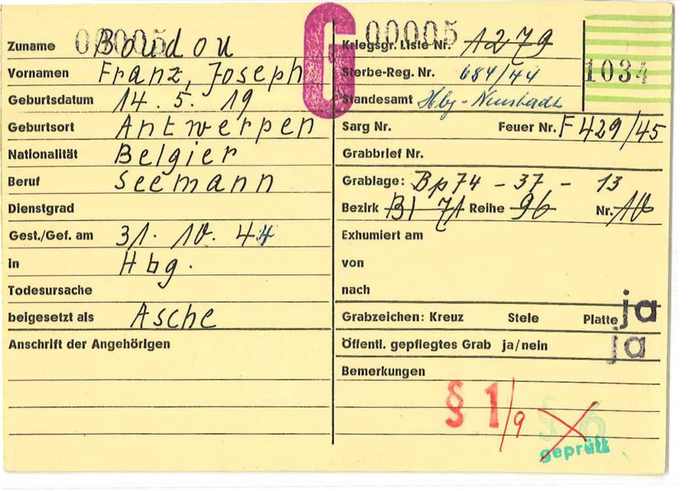 Zuname 00005 Boudou
Vornamen Franz, Joseph
Geburtsdatum 14. 5. 19
Geburtsort Antwerpen
Nationalität Belgier
Beruf Seemann
Dienstgrad
Gest./Gef. am 31. 10. 44
in Hbg.
Todesursache
beigesetzt als Asche
Anschrift der Angehörigen
G
Kriegsgr. Liste Nr. 00005 A279
Sterbe-Reg. Nr. 684/44
Standesamt Hbg-Neustadt
1034
Sarg Nr. Feuer Nr. F 429/45
Grabbrief Nr.
Grablage: Bp 74 - 37 - 13
Bezirk Bl 71 Reihe 96 Nr. 10
Exhumiert am
von
nach
Grabzeichen: Kreuz Stele Platte ja
Öffentl. gepflegtes Grab ja/nein ja
Bemerkungen
§ 1/9 § 6
geprüft